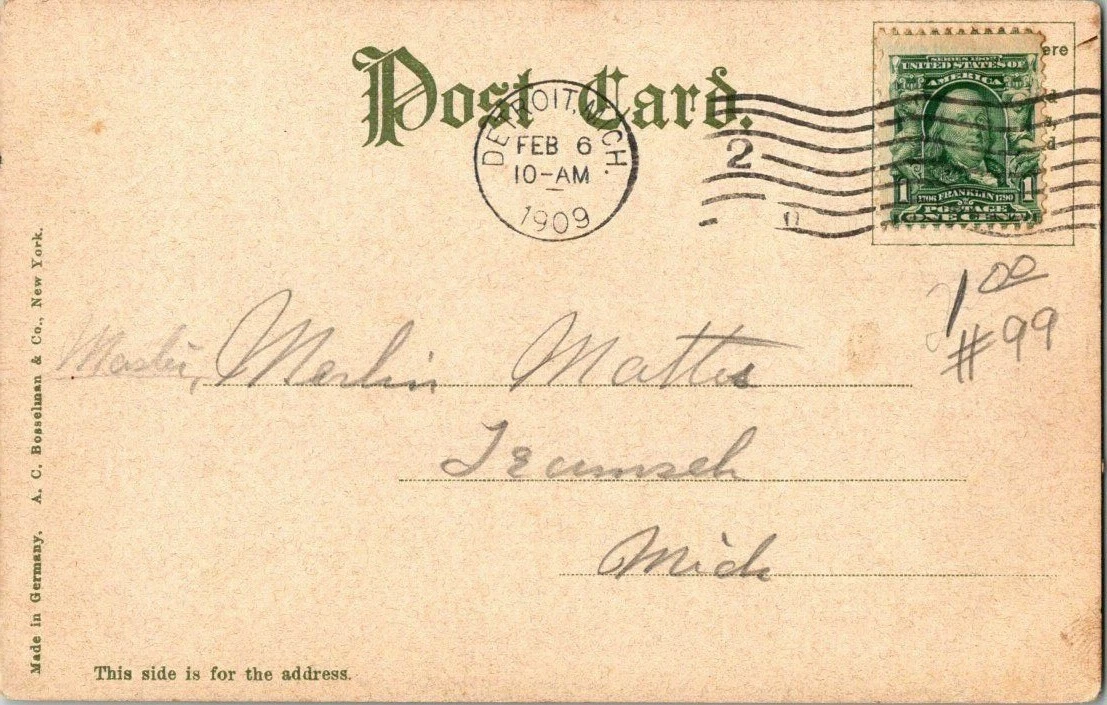 Post Card.
ere
d
d
DETROIT, MICH.
FEB 6
10-AM
1909
2
SERIES 1902
UNITED STATES OF
AMERICA
1 1
1706 FRANKLIN 1790
POSTAGE
ONE CENT
1 00
#99
Master, Merlin Mattes
Tecumseh
Mich
Made in Germany. A. C. Bosselman & Co., New York.
This side is for the address.